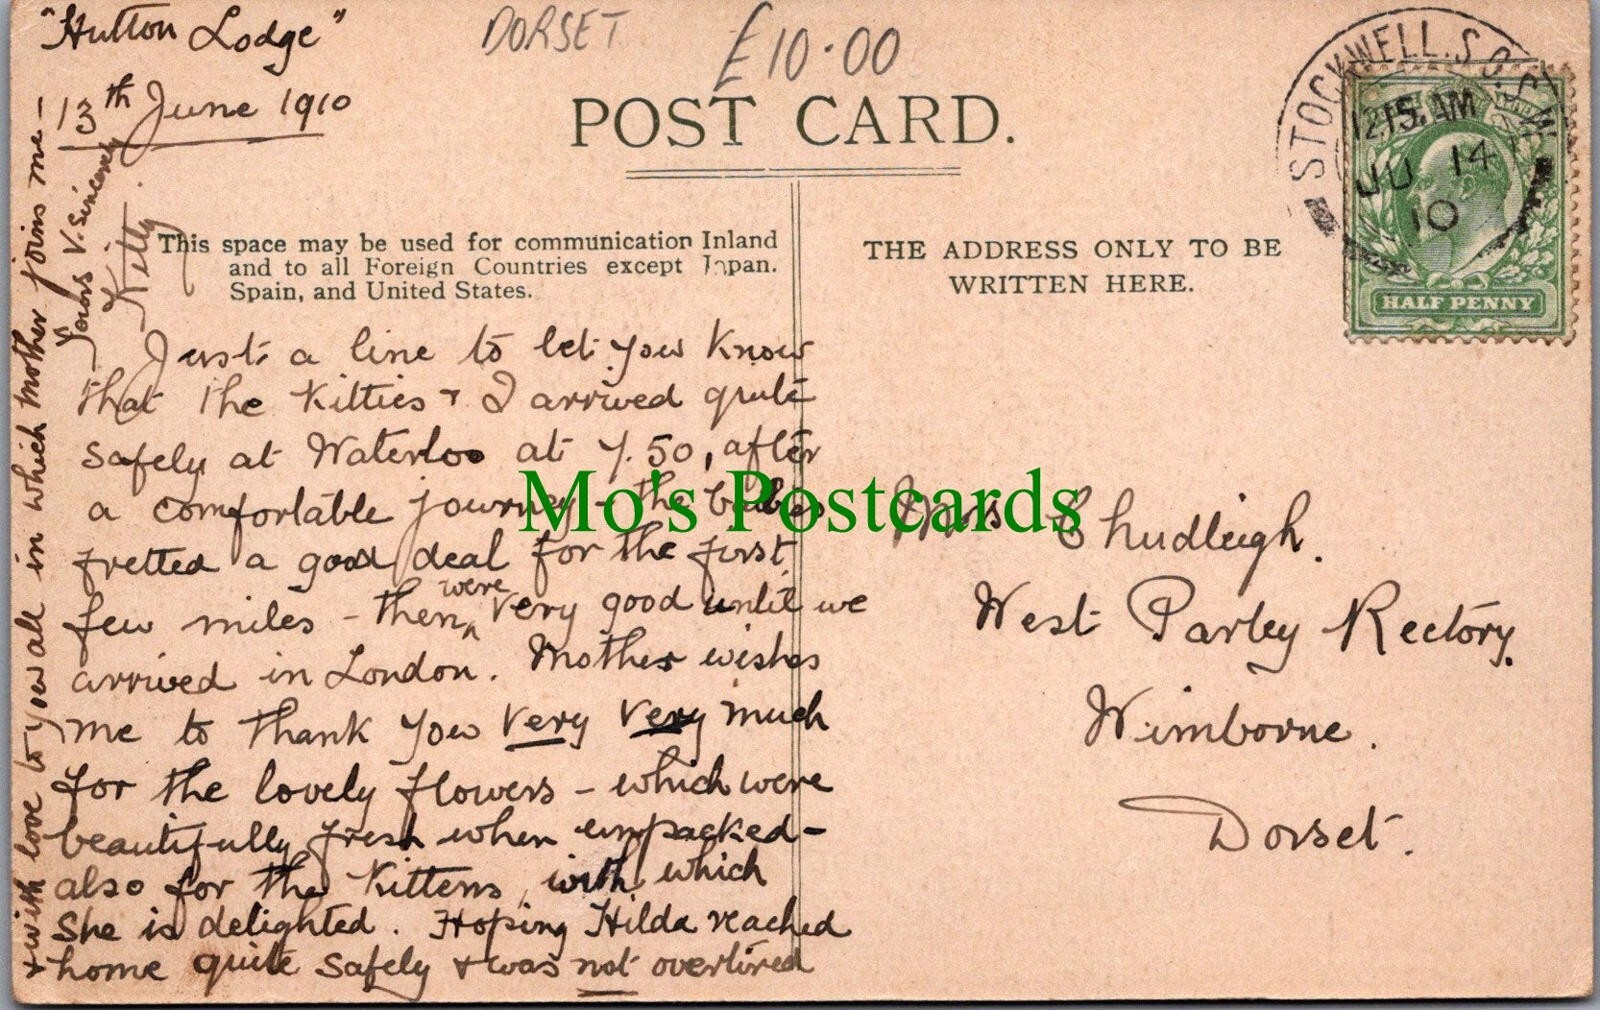 "Hutton Lodge"
13th June 1910
DORSET
£10.00
POST CARD.
STOCKWELL. S.O. S.W.
12.15. AM
JU 14
10
HALF PENNY
This space may be used for communication Inland
and to all Foreign Countries except Japan.
Spain, and United States.
THE ADDRESS ONLY TO BE
WRITTEN HERE.
Just a line to let you know
that the Kitties & I arrived quite
safely at Waterloo at 7.50, after
a comfortable journey - the babies
fretted a good deal for the first
few miles - then were very good until we
arrived in London. Mother wishes
me to thank you very very much
for the lovely flowers - which were
beautifully fresh when unpacked -
also for the Kittens, with which
she is delighted. Hoping Hilda reached
home quite safely & was not overtired
& with love to you all in which mother joins me -
Yours V. Sincerely
Kitty.
Mrs Chudleigh.
West Parley Rectory.
Wimborne.
Dorset.
Mo's Postcards